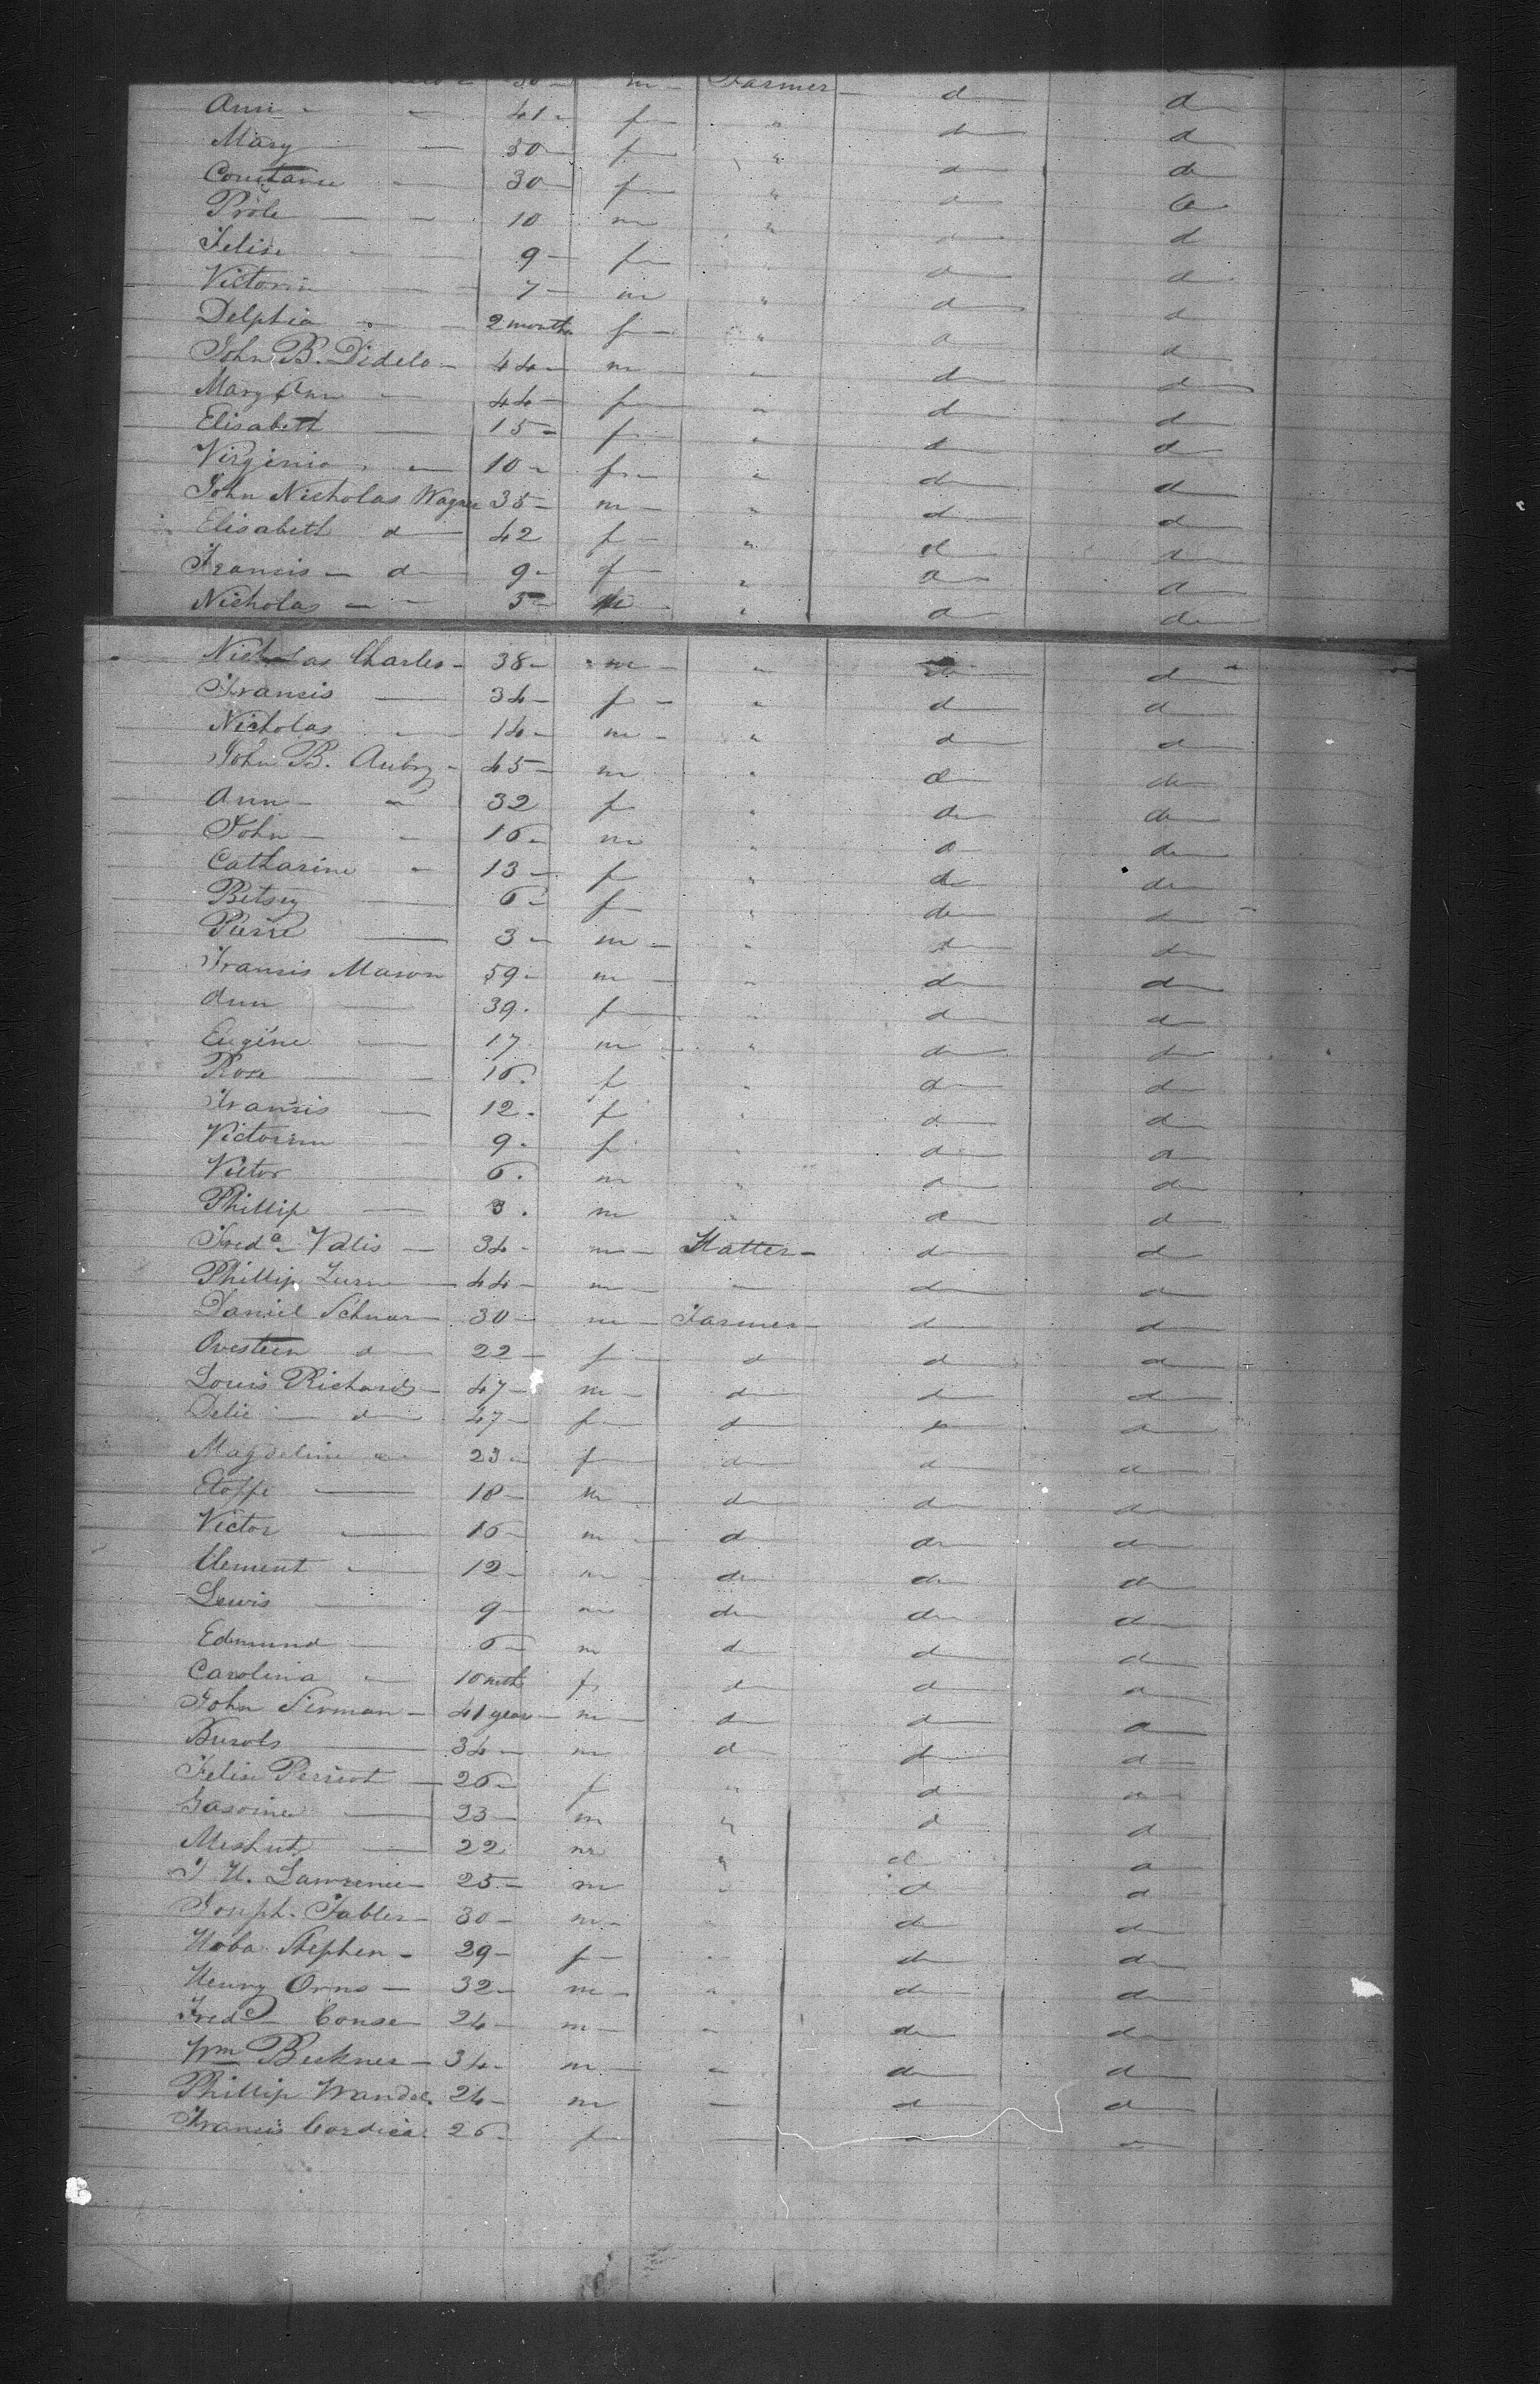 30 - m - Farmer - d d
Ann - - 41 - f " d d
Mary - - 50 - f " d d
Constance - 30 - f " d d
Prole - - 10 m " d d
Felise - - 9 - f d d
Victorin - - 7 - m " d d
Delphia - - 2 months f - " d d
John B. Didelo - 44 - m - " d d
Mary Ann - 44 - f " d d
Elisabett - 15 - f " d d
Virginia - - 10 - f - " d d
John Nicholas Wagner 35 - m - " d d
Elisabett d 42 f - " d d
Francis - d 9 - f " d d
Nicholas - - 5 - m - " d d
Nicholas Charles - 38 - m - " d d
Francis - 34 - f - " d d
Nicholas - 14 - m - " d d
John B. Aubry - 45 - m " d d
Ann - - 32 f " d d
John - - 16 - m " d d
Catharine - 13 - f " d d
Betsey - 6 - f " d d
Pierre - 3 - m - " d d
Francis Mason 59 - m - " d d
Ann - 39 . f " d d
Eugéne - 17 m - " d d
Rose - - 16 . f " d d
Francis - 12 . f " d d
Victorine - 9 . f " d d
Victor - 6 . m " d d
Phillip - 3 . m " d d
Fred^c Valis - 34 - m - Hatter - d d
Phillip - 44 - m - - d d
Daniel Schnar 30 - m - Farmer - d d
d 22 - f - d d d
Louis Richards - 47 - m - d d d
Delie - d 47 - f d d d
Magdeline - 23 - f d d d
18 - m d d d
Victor - 16 - m - d d d
Clement - 12 - m - d d d
Lewis - 9 - m d d d
Edmund - 6 - m d d d
Carolina - 10 mth f d d d
John Sirman - 41 years - m - d d d
34 - m d d d
Felise Perriot - 26 - f " d d
23 - m " d d
22 m " d d
J H. Lawrence - 25 - m " d d
Joseph Fabler - 30 - m - " d d
Hoba Stephen - 29 - f - " d d
Henry Orns - 32 - m - " d d
Fred^c - Conse - 24 - m - " d d
Wm Beckner - 34 - m - " d d
Phillip Wandel 24 - m - d d
Francis Cordica . 26 - f - d d